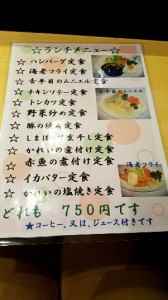 ☆ランチメニュー☆
☆ ハンバーグ定食
☆ 海老フライ定食
☆ 舌平目のムニエル定食
☆ チキンソテー定食
☆ トンカツ定食
☆ 野菜炒め定食
☆ 豚の 定食
☆ しまほっけ一夜干し定食
☆ かれいの煮付け定食
☆ 赤魚の煮付け定食
☆ イカバター定食
☆ かれいの塩焼き定食
どれも 750円です
★コーヒー、又は、ジュース付きです
舌平目のムニエル
海老フライ